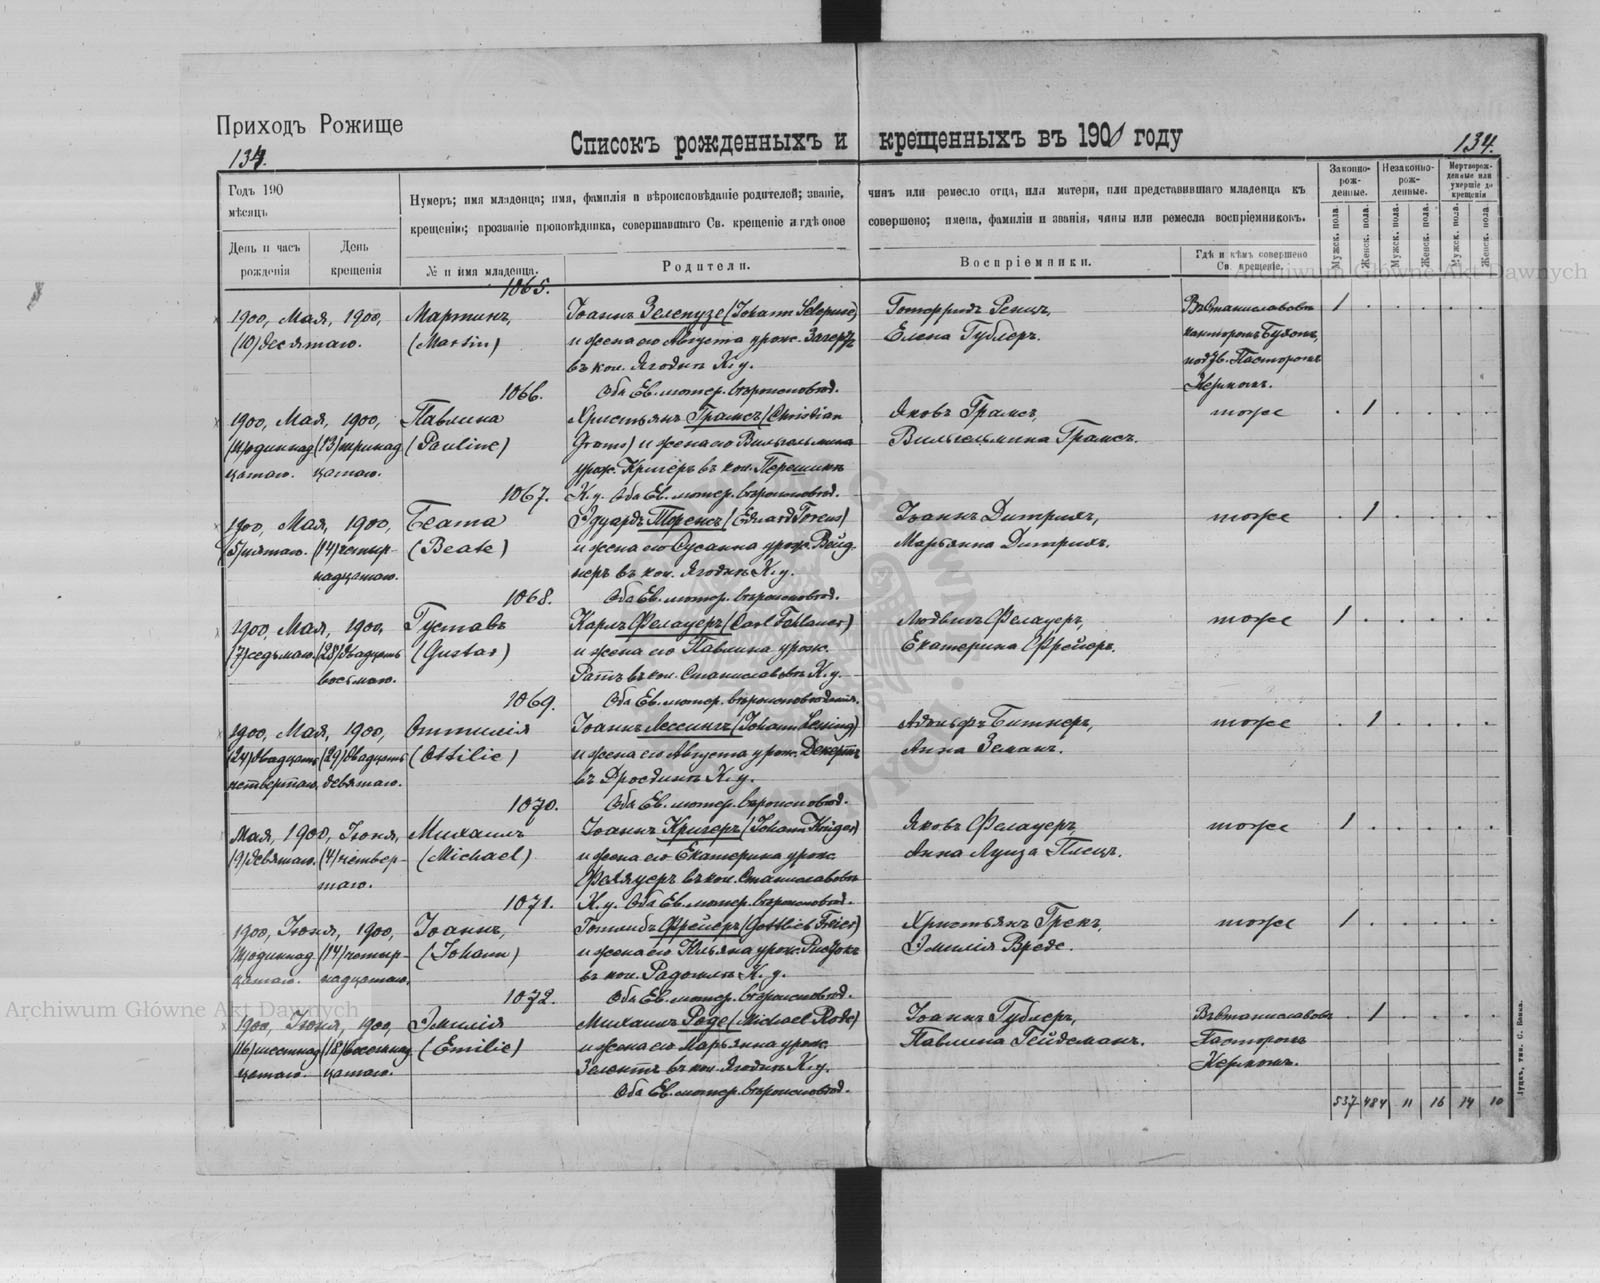 Приходъ Рожище
Списокъ рожденныхъ и крещенныхъ въ 1900 году
134.
134.
Годъ 190
мѣсяцъ
День и часъ рожденія
День крещенія
Нумеръ; имя младенца; имя, фамилія и вѣроисповѣданіе родителей; званіе, чинъ или ремесло отца, или матери, или представившаго младенца къ
крещенію; прозваніе проповѣдника, совершавшаго Св. крещеніе и гдѣ оное совершено; имена, фамиліи и званія, чины или ремесла воспріемниковъ.
№ и имя младенца.
Родители.
Воспріемники.
Гдѣ и кѣмъ совершено Св. крещеніе.
Законно-рож-денные.
Незаконно-рож-денные.
Мертворож-денные или умершіе до крещенія
Мужск. пола.
Женск. пола.
Мужск. пола.
Женск. пола.
Мужск. пола.
Женск. пола.
Archiwum Główne Akt Dawnych
1065.
1900, Мая, 1900, Мартинъ, Іоаннъ Зелепузе (Johann Selepuse) Готфридъ Ренцъ, Въ Станиславовкѣ 1
(10) десятаго. (Martin) и жена его Августа урож. Елена Гублеръ. канторомъ
въ кол. Ягодинъ К. у. подтв. Пасторомъ
1066. Оба Ев. лютер. вѣроисповѣд. Керномъ.
1900, Мая, 1900, Павлина Христьянъ Грамсъ (Christian Яковъ Грамсъ, тоже 1
(11) одиннад (13) тринад (Pauline) Grams) и жена его Вильгельмина Вильгельмина Грамсъ.
цатаго. цатаго. урож. Кригеръ въ кол.
1067. К. у. Оба Ев. лютер. вѣроисповѣд.
1900, Мая, 1900, Беата Эдуардъ Торенсъ (Eduard Іоаннъ Дитрихъ, тоже 1
(5) пятаго. (14) четыр- (Beate) и жена его Сусанна урож. Вейд- Марьянна Дитрихъ.
надцатаго. неръ въ кол. Ягодинъ К. у.
1068. Оба Ев. лютер. вѣроисповѣд.
1900, Мая, 1900, Густавъ Карлъ Фелауеръ (Carl Fehlauer) Людвигъ Фелауеръ, тоже 1
(7) седьмаго. (28) двадцать (Gustav) и жена его Павлина урож. Екатерина Фрейеръ.
восьмаго. въ кол. Станиславовкѣ К. у.
1069. Оба Ев. лютер. вѣроисповѣданія.
1900, Мая, 1900, Оттилія Іоаннъ Лессингъ (Johann Lessing) Адольфъ Битнеръ, тоже 1
(24) двадцать (29) двадцать (Ottilie) и жена его Августа урож. Декертъ Анна Земанъ.
четвертаго. девятаго. въ К. у.
1070. Оба Ев. лютер. вѣроисповѣд.
Мая, 1900, Іюня, Михаилъ Іоаннъ Кригеръ (Johann Krüger) Яковъ Фелауеръ, тоже 1
(9) девятаго. (4) четвер- (Michael) и жена его Екатерина урож. Анна Луиза
таго. Фелауеръ въ кол. Станиславовкѣ
1071. К. у. Оба Ев. лютер. вѣроисповѣд.
1900, Іюня, 1900, Іоаннъ, Готлибъ Фрейеръ (Gottlieb Freier) Христьянъ Грекъ, тоже 1
(11) одиннад (14) четыр- (Johann) и жена его урож. Эмилія Вреде.
цатаго. надцатаго. въ кол. К. у.
1072. Оба Ев. лютер. вѣроисповѣд.
Archiwum Główne Akt Dawnych
1900, Іюня, 1900, Эмилія Михаилъ Роде (Michael Rode) Іоаннъ Гублеръ, Въ Станиславовкѣ 1
(16) шестнад (18) восемнад (Emilie) и жена его Марьянна урож. Павлина Гейдеманъ. Пасторомъ
цатаго. цатаго. въ кол. Ягодинъ К. у. Керномъ.
Оба Ев. лютер. вѣроисповѣд.
537 484 11 16 14 10